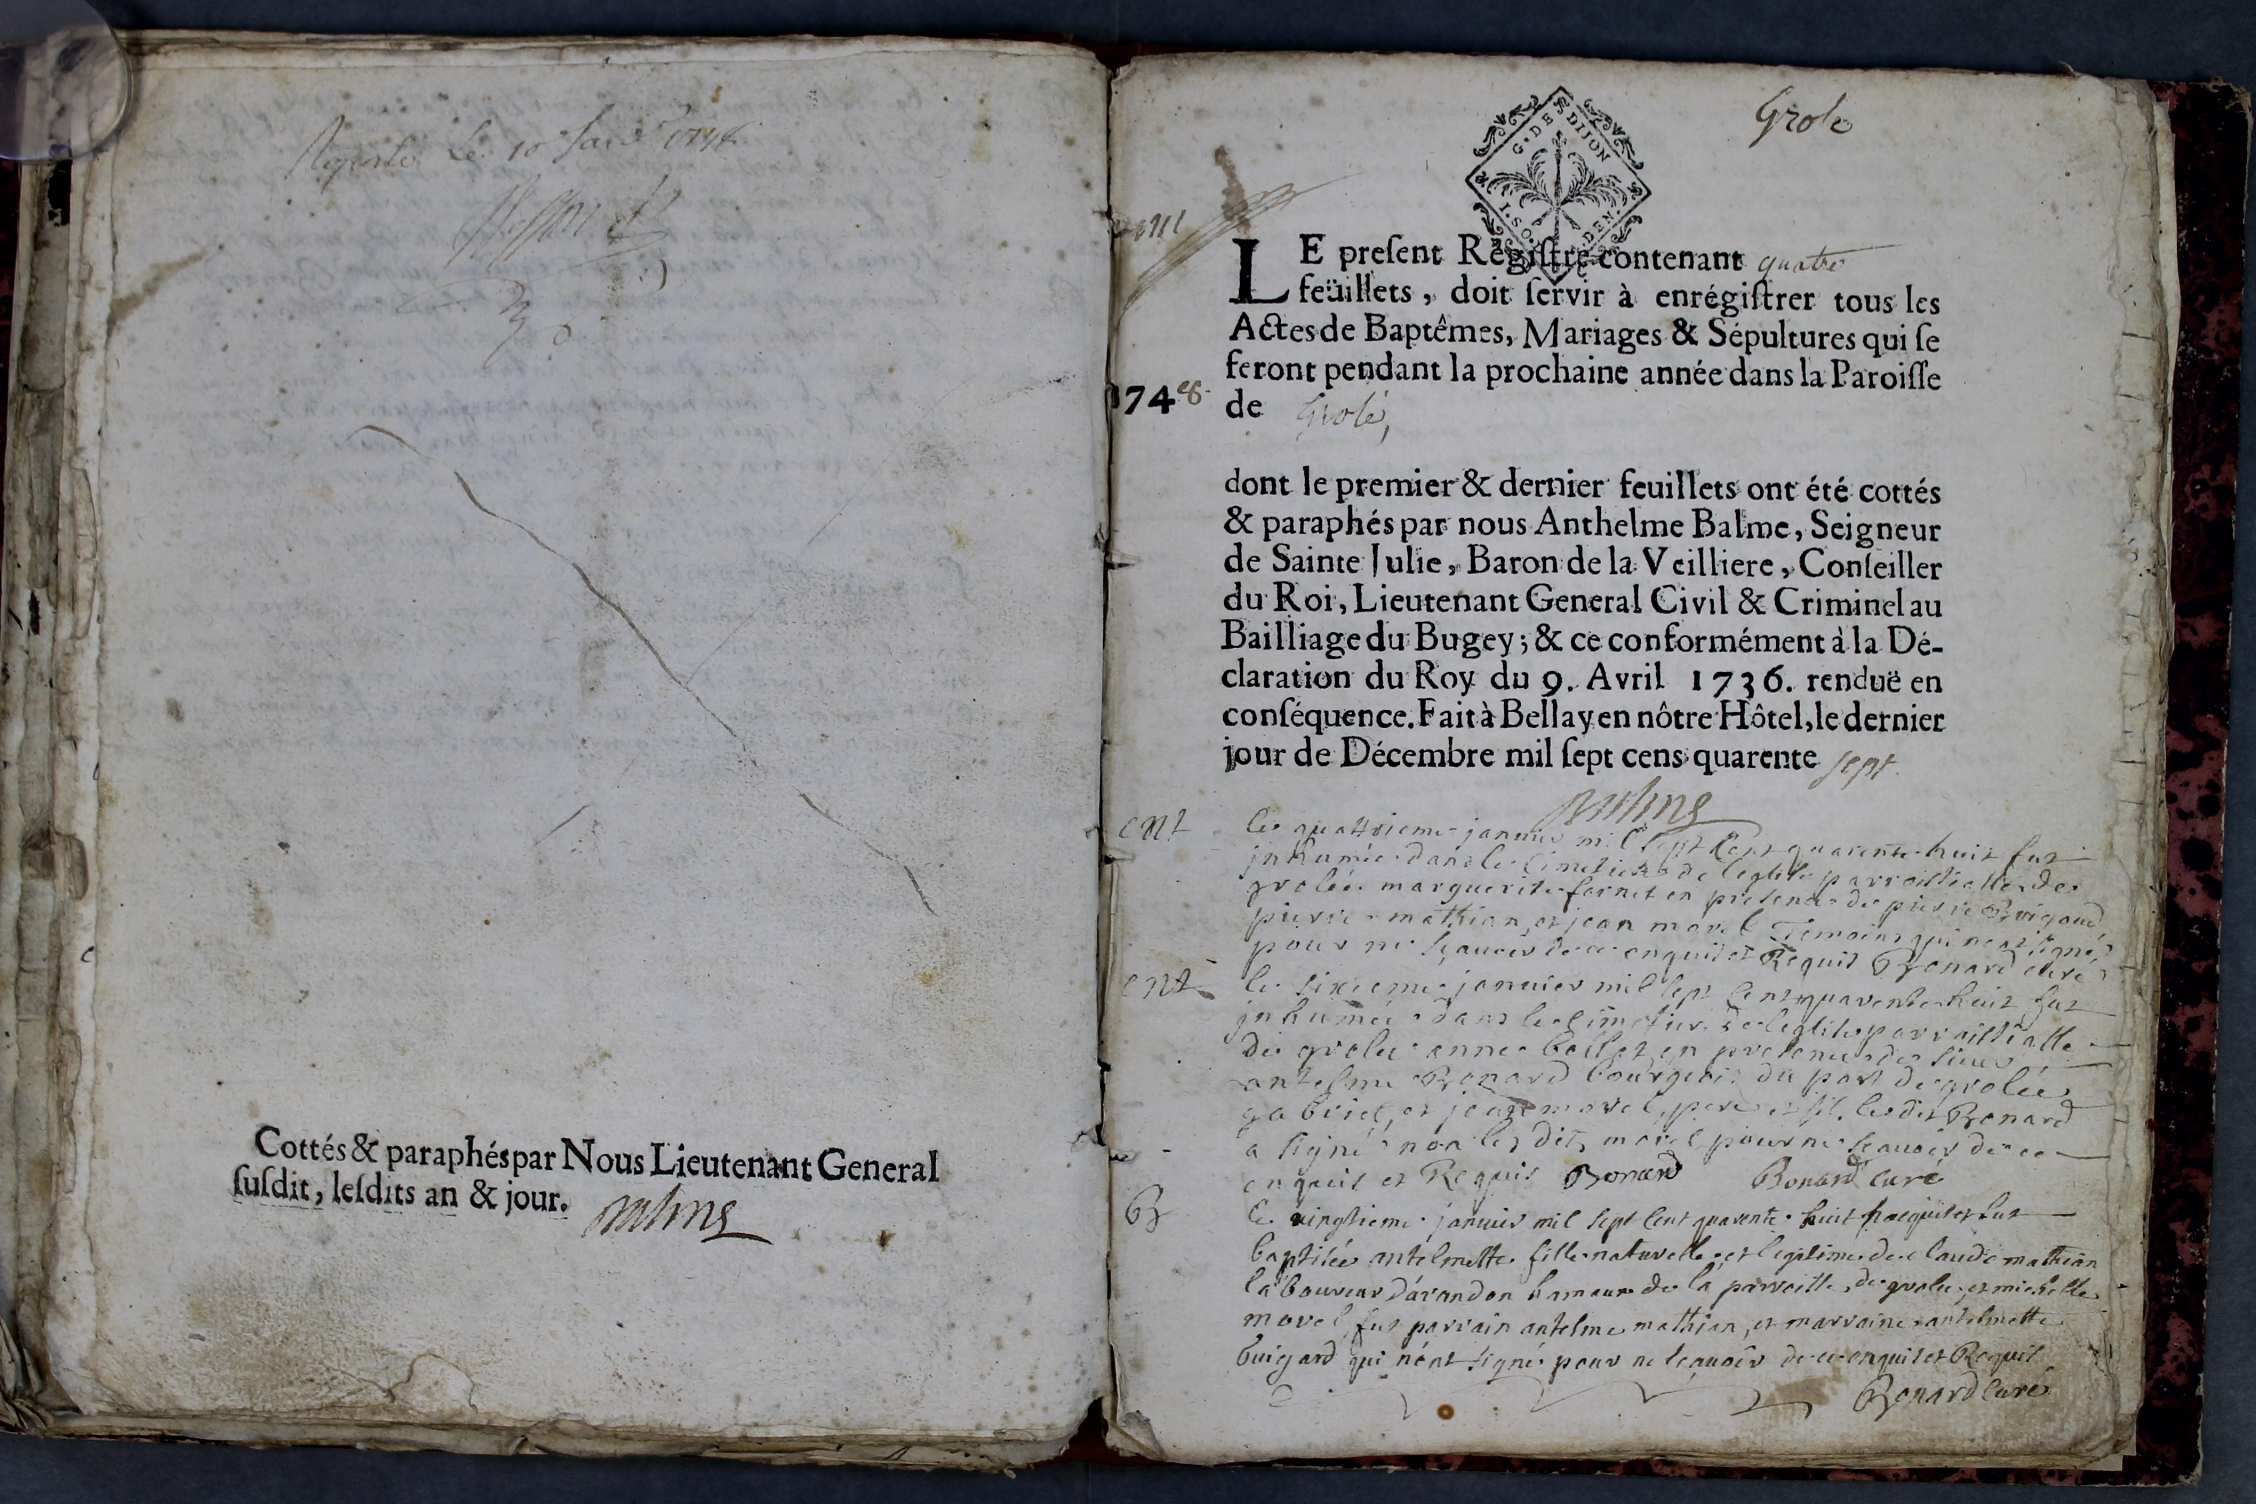 le 10
Cottés & paraphés par Nous Lieutenant General
ſuſdit, leſdits an & jour.
Balme
Grole
G. DE DIJON
LE preſent Regiſtre contenant quatre
feüillets, doit ſervir à enrégiſtrer tous les
Actes de Baptêmes, Mariages & Sépultures qui ſe
feront pendant la prochaine année dans la Paroiſſe
1748
de Grolé,
dont le premier & dernier feuillets ont été cottés
& paraphés par nous Anthelme Balme, Seigneur
de Sainte Julie, Baron de la Veilliere, Conſeiller
du Roi, Lieutenant General Civil & Criminel au
Bailliage du Bugey; & ce conformément à la Dé-
claration du Roy du 9. Avril 1736. renduë en
conſéquence. Fait à Bellay en nôtre Hôtel, le dernier
jour de Décembre mil ſept cens quarente sept
Balme
ent
le quattrieme janvier mil sept cent quarente huit fut
inhumée dans le cimetiere de leglise parroissialle de
grolée marguerite fornet en presence de pierre Brigaud
pierre mathian, et jean morel temoins qui n'ont signé
pour ne sçavoir de ce enquis et Requis Bonard curé
ent
le sixieme janvier mil sept cent quarente huit fut
inhumée dans le cimetiere de leglise parroissialle
de grolée anne en presence de sieur
antelme Bonard bourgeois du port de grolée
gabriel, et jean morel, pere et fil, le dit Bonard
a signé non les dits morel pour ne sçavoir de ce
enquis et Requis Bonard Bonard curé
B
le vingtieme janvier mil sept cent quarente huit nacquit et fut
baptisée antelmette fille naturelle et legitime de claude mathian
laboureur d'arandon hameau de la parroisse de grolée, et michelle
morel, fut parrain antelme mathian, et marraine antelmette
buigard qui n'ont signé pour ne sçavoir de ce enquis et Requis
Bonard curé